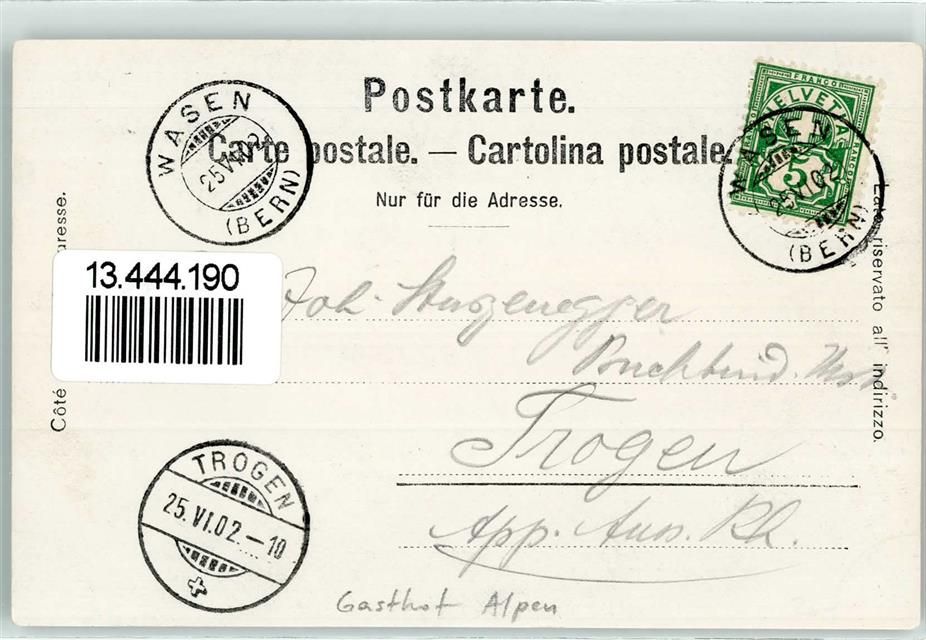 Postkarte.
Carte postale. — Cartolina postale.
Nur für die Adresse.
WASEN
25 VI 02
(BERN)
FRANCO
HELVETIA
FRANCO
5
WASEN
25 VI 02
(BERN)
Côté
adresse.
Lato riservato all' indirizzo.
13.444.190
Joh. Sturzenegger
Buchbind.
Trogen
App. Aus. Rh.
TROGEN
25. VI. 02. – 10
Gasthof Alpen